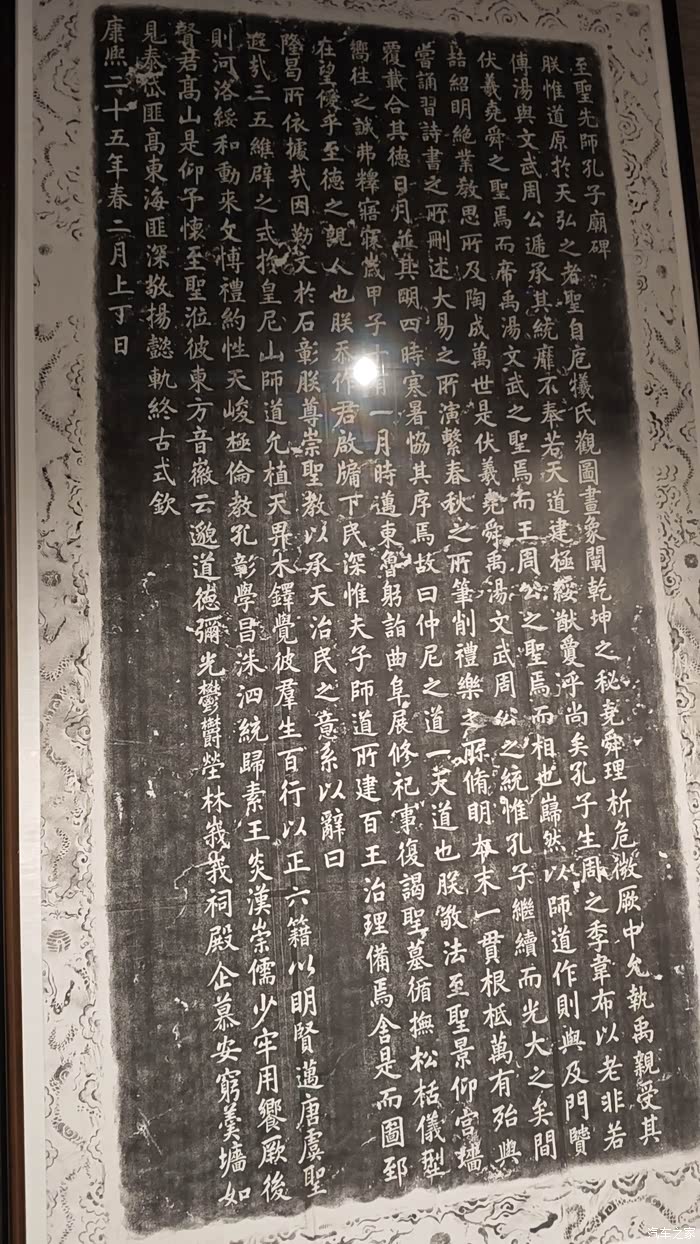 至聖先師孔子廟碑
朕惟道原於天弘之者聖自庖犧氏觀圖畫象闡乾坤之秘堯舜理析危微厥中允執禹親受其
傳湯與文武周公遞承其統靡不奉若天道建極綏猷夐乎尚矣孔子生周之季韋布以老非若
伏羲堯舜之聖焉而帝禹湯文武之聖焉而王周公之聖焉而相也巋然以師道作則與及門賢
喆紹明絶業教思所及陶成萬世是伏羲堯舜禹湯文武周公之統惟孔子繼續而光大之矣間
嘗誦習詩書之所刪述大易之所演繫春秋之所筆削禮樂之所脩明本末一貫根柢萬有殆與
覆載合其德日月並其明四時寒暑協其序焉故曰仲尼之道一天道也朕敬法至聖景仰宮墻
嚮往之誠弗釋寤寐歲甲子十有一月時邁東魯躬詣曲阜展修祀事復謁聖墓循撫松栝儀型
在望僾乎至德之親人也朕忝作君啟牖下民深惟夫子師道所建百王治理備焉舍是而圖郅
隆曷所依據哉因勒文於石彰朕尊崇聖教以承天治民之意系以辭曰
遐哉三五維辟之式於皇尼山師道允植天畀木鐸覺彼羣生百行以正六籍以明賢邁唐虞聖
則河洛綏和動來文博禮約性天峻極倫教孔彰學昌洙泗統歸素王炎漢崇儒少牢用饗厥後
賢君高山是仰予懷至聖涖彼東方音徽云邈道德彌光鬱鬱塋林峩峩祠殿企慕安窮羹墻如
見泰岱匪高東海匪深敬揚懿軌終古式欽
康熙二十五年春二月上丁日
卡车之家